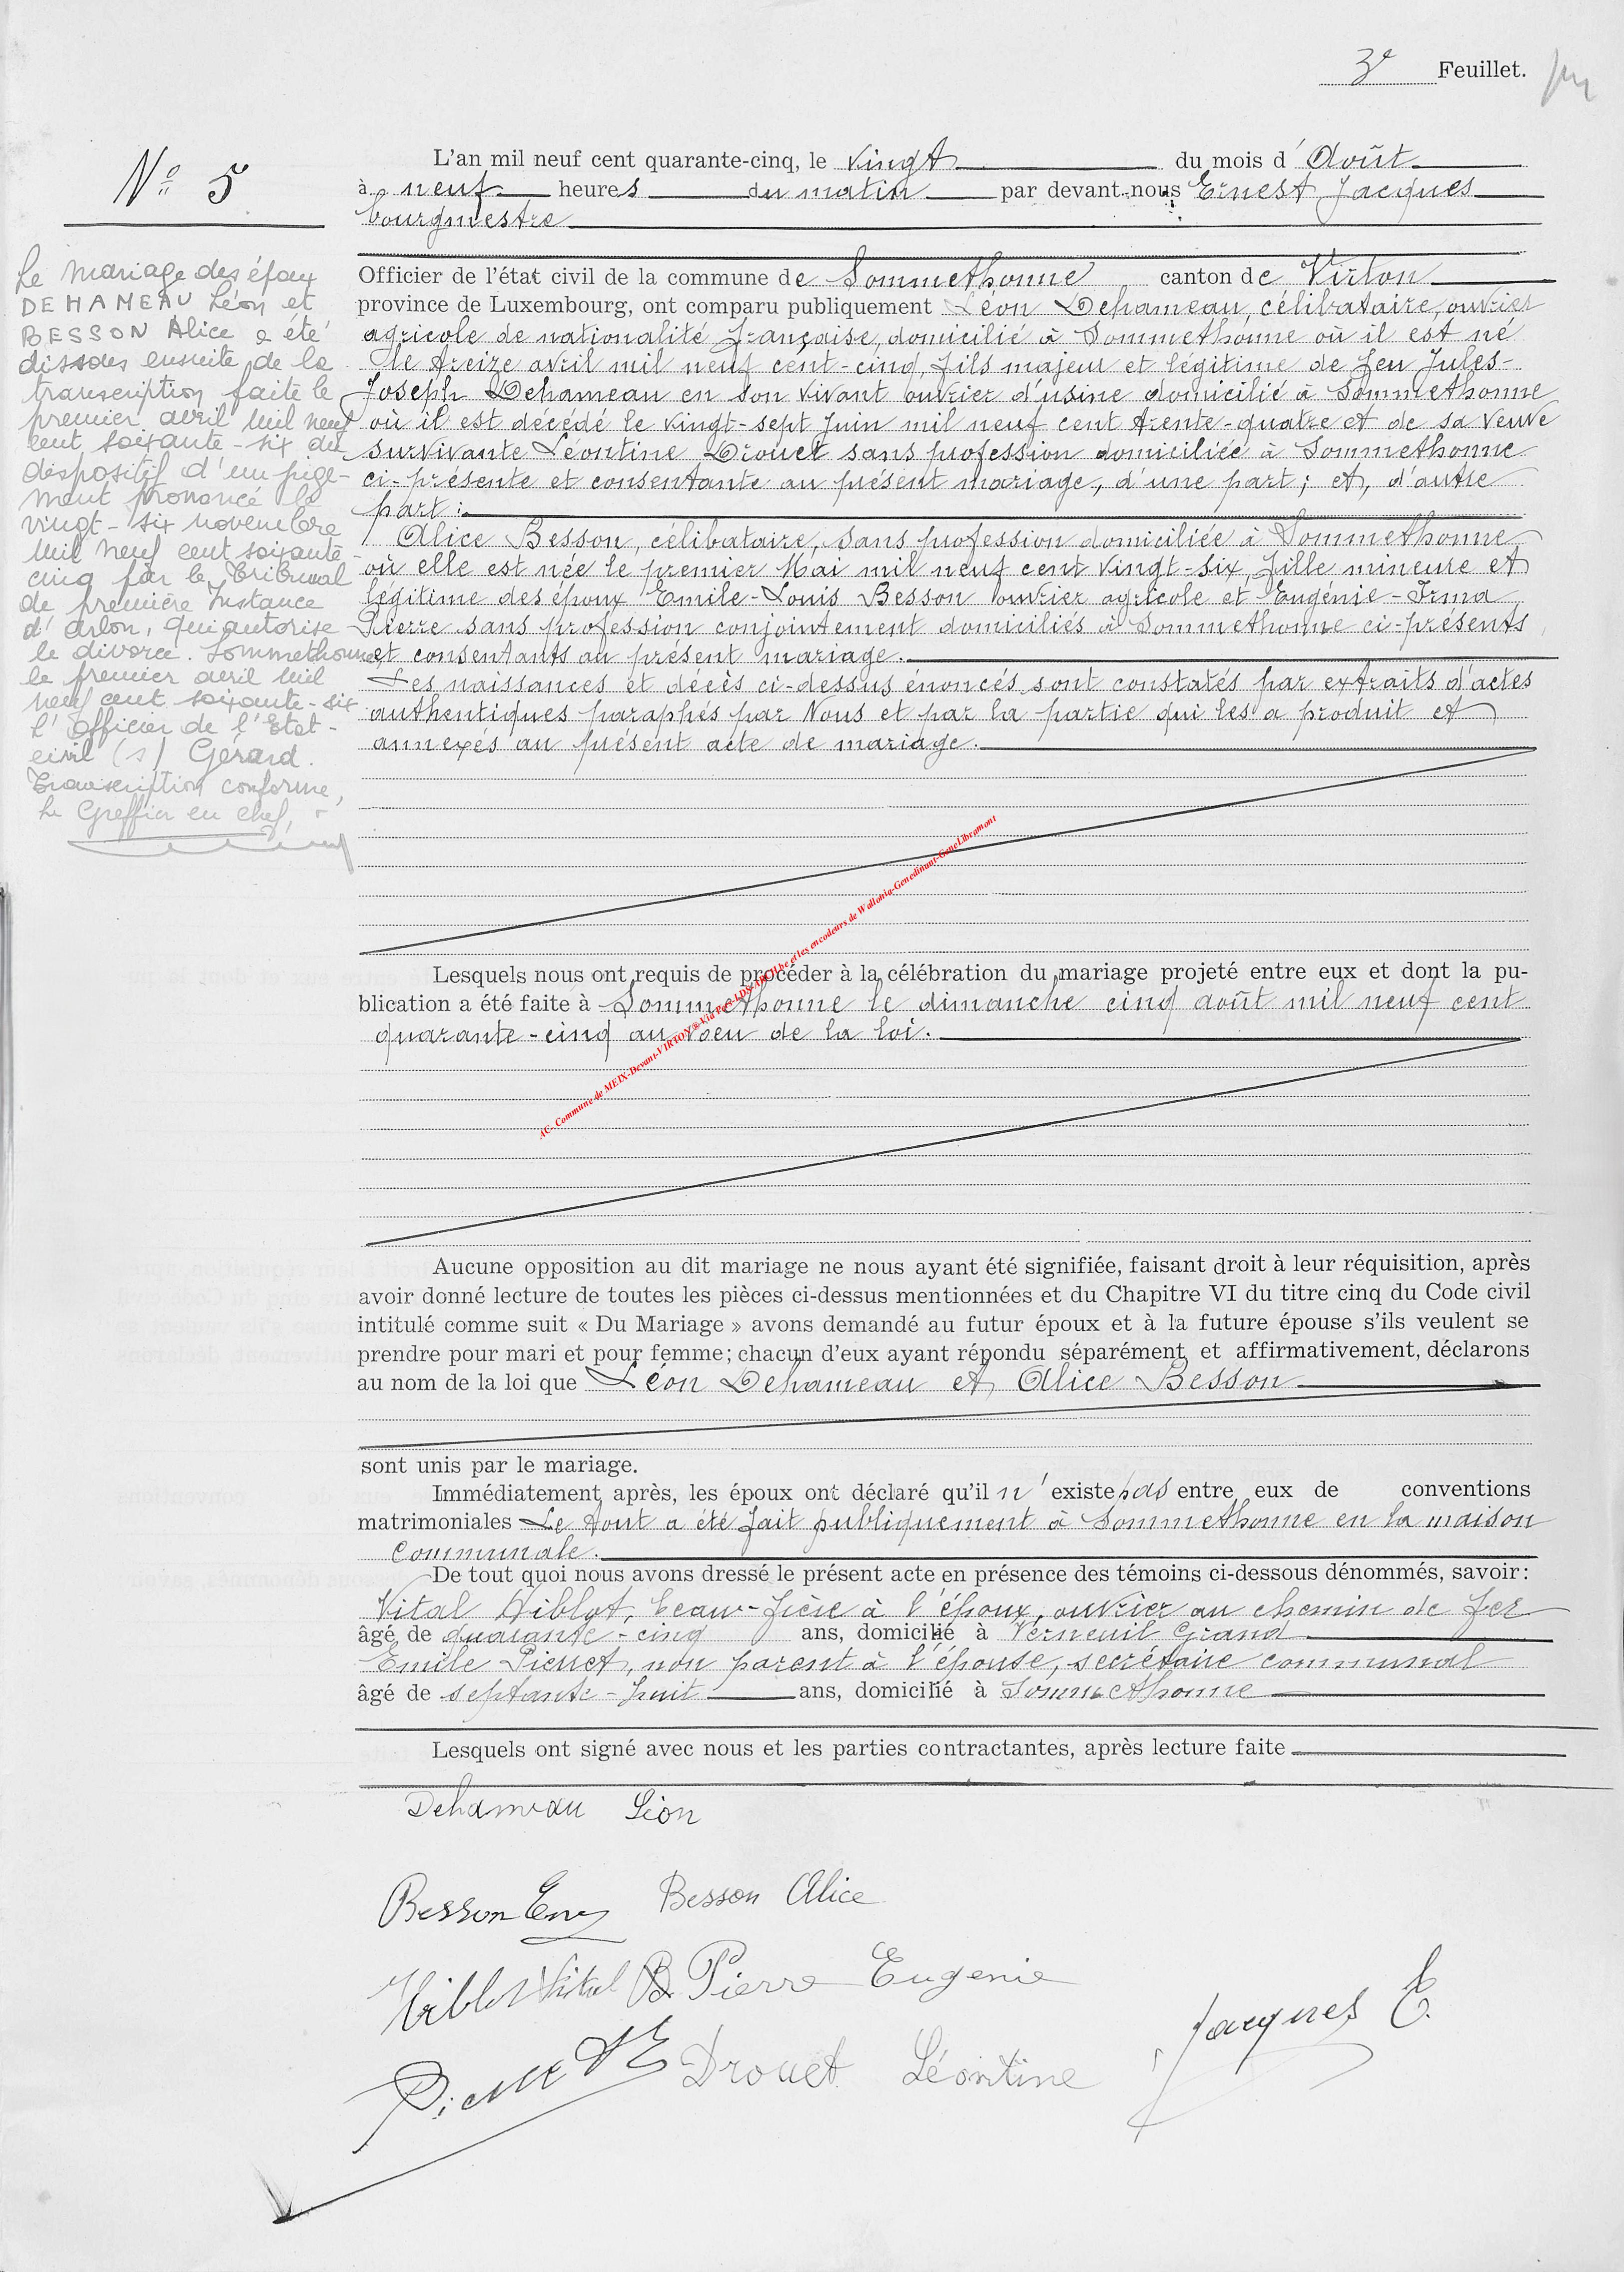 3e Feuillet.
No 5
L'an mil neuf cent quarante-cinq, le vingt du mois d'Août
à neuf heures du matin par devant nous Ernest Jacques
bourgmestre
Officier de l'état civil de la commune de Sommethonne canton de Virton
province de Luxembourg, ont comparu publiquement Léon Dehameau, célibataire, ouvrier
agricole de nationalité française, domicilié à Sommethonne où il est né
le treize avril mil neuf cent-cinq, fils majeur et légitime de feu Jules-
Joseph Dehameau en son vivant ouvrier d'usine domicilié à Sommethonne
où il est décédé le vingt-sept Juin mil neuf cent trente-quatre et de sa veuve
survivante Léontine Drouet sans profession domiciliée à Sommethonne
ci-présente et consentante au présent mariage, d'une part; et, d'autre
part:
Alice Besson, célibataire, sans profession domiciliée à Sommethonne
où elle est née le premier Mai mil neuf cent vingt-six, fille mineure et
légitime des époux Emile-Louis Besson ouvrier agricole et Eugénie-Irma
Pierre sans profession conjointement domiciliés à Sommethonne ci-présents
et consentants au présent mariage.
Les naissances et décès ci-dessus énoncés sont constatés par extraits d'actes
authentiques paraphés par Nous et par la partie qui les a produit et
annexés au présent acte de mariage.
Le mariage des époux
DEHAMEAU Léon et
BESSON Alice a été
dissous ensuite de la
transcription faite le
premier avril mil neuf
cent soixante-six du
dispositif d'un juge-
ment prononcé le
vingt-six novembre
mil neuf cent soixante-
cinq par le Tribunal
de première Instance
d'Arlon, qui autorise
le divorce. Sommethonne
le premier avril mil
neuf cent soixante-six
l'Officier de l'Etat-
civil (s) Gerard.
Transcription conforme,
Le Greffier en chef,
Lesquels nous ont requis de procéder à la célébration du mariage projeté entre eux et dont la pu-
blication a été faite à Sommethonne le dimanche cinq août mil neuf cent
quarante-cinq au voeu de la loi.
AC- Commune de MEIX-Devant-VIRTON
Aucune opposition au dit mariage ne nous ayant été signifiée, faisant droit à leur réquisition, après
avoir donné lecture de toutes les pièces ci-dessus mentionnées et du Chapitre VI du titre cinq du Code civil
intitulé comme suit « Du Mariage » avons demandé au futur époux et à la future épouse s'ils veulent se
prendre pour mari et pour femme; chacun d'eux ayant répondu séparément et affirmativement, déclarons
au nom de la loi que Léon Dehameau et Alice Besson
sont unis par le mariage.
Immédiatement après, les époux ont déclaré qu'il n'existe pas entre eux de conventions
matrimoniales Le tout a été fait publiquement à Sommethonne en la maison
Communale.
De tout quoi nous avons dressé le présent acte en présence des témoins ci-dessous dénommés, savoir:
Vital Hiblot, beau-frère à l'époux, ouvrier au chemin de fer
âgé de quarante-cinq ans, domicilié à Verneuil Grand
Emile Pierret, non parent à l'épouse, secrétaire communal
âgé de septante-huit ans, domicilié à Sommethonne
Lesquels ont signé avec nous et les parties contractantes, après lecture faite
Dehameau Léon
Besson Besson Alice
Hiblot Vital B. Pierre Eugenie
Jacques E.
Pierret E Drouet Léontine